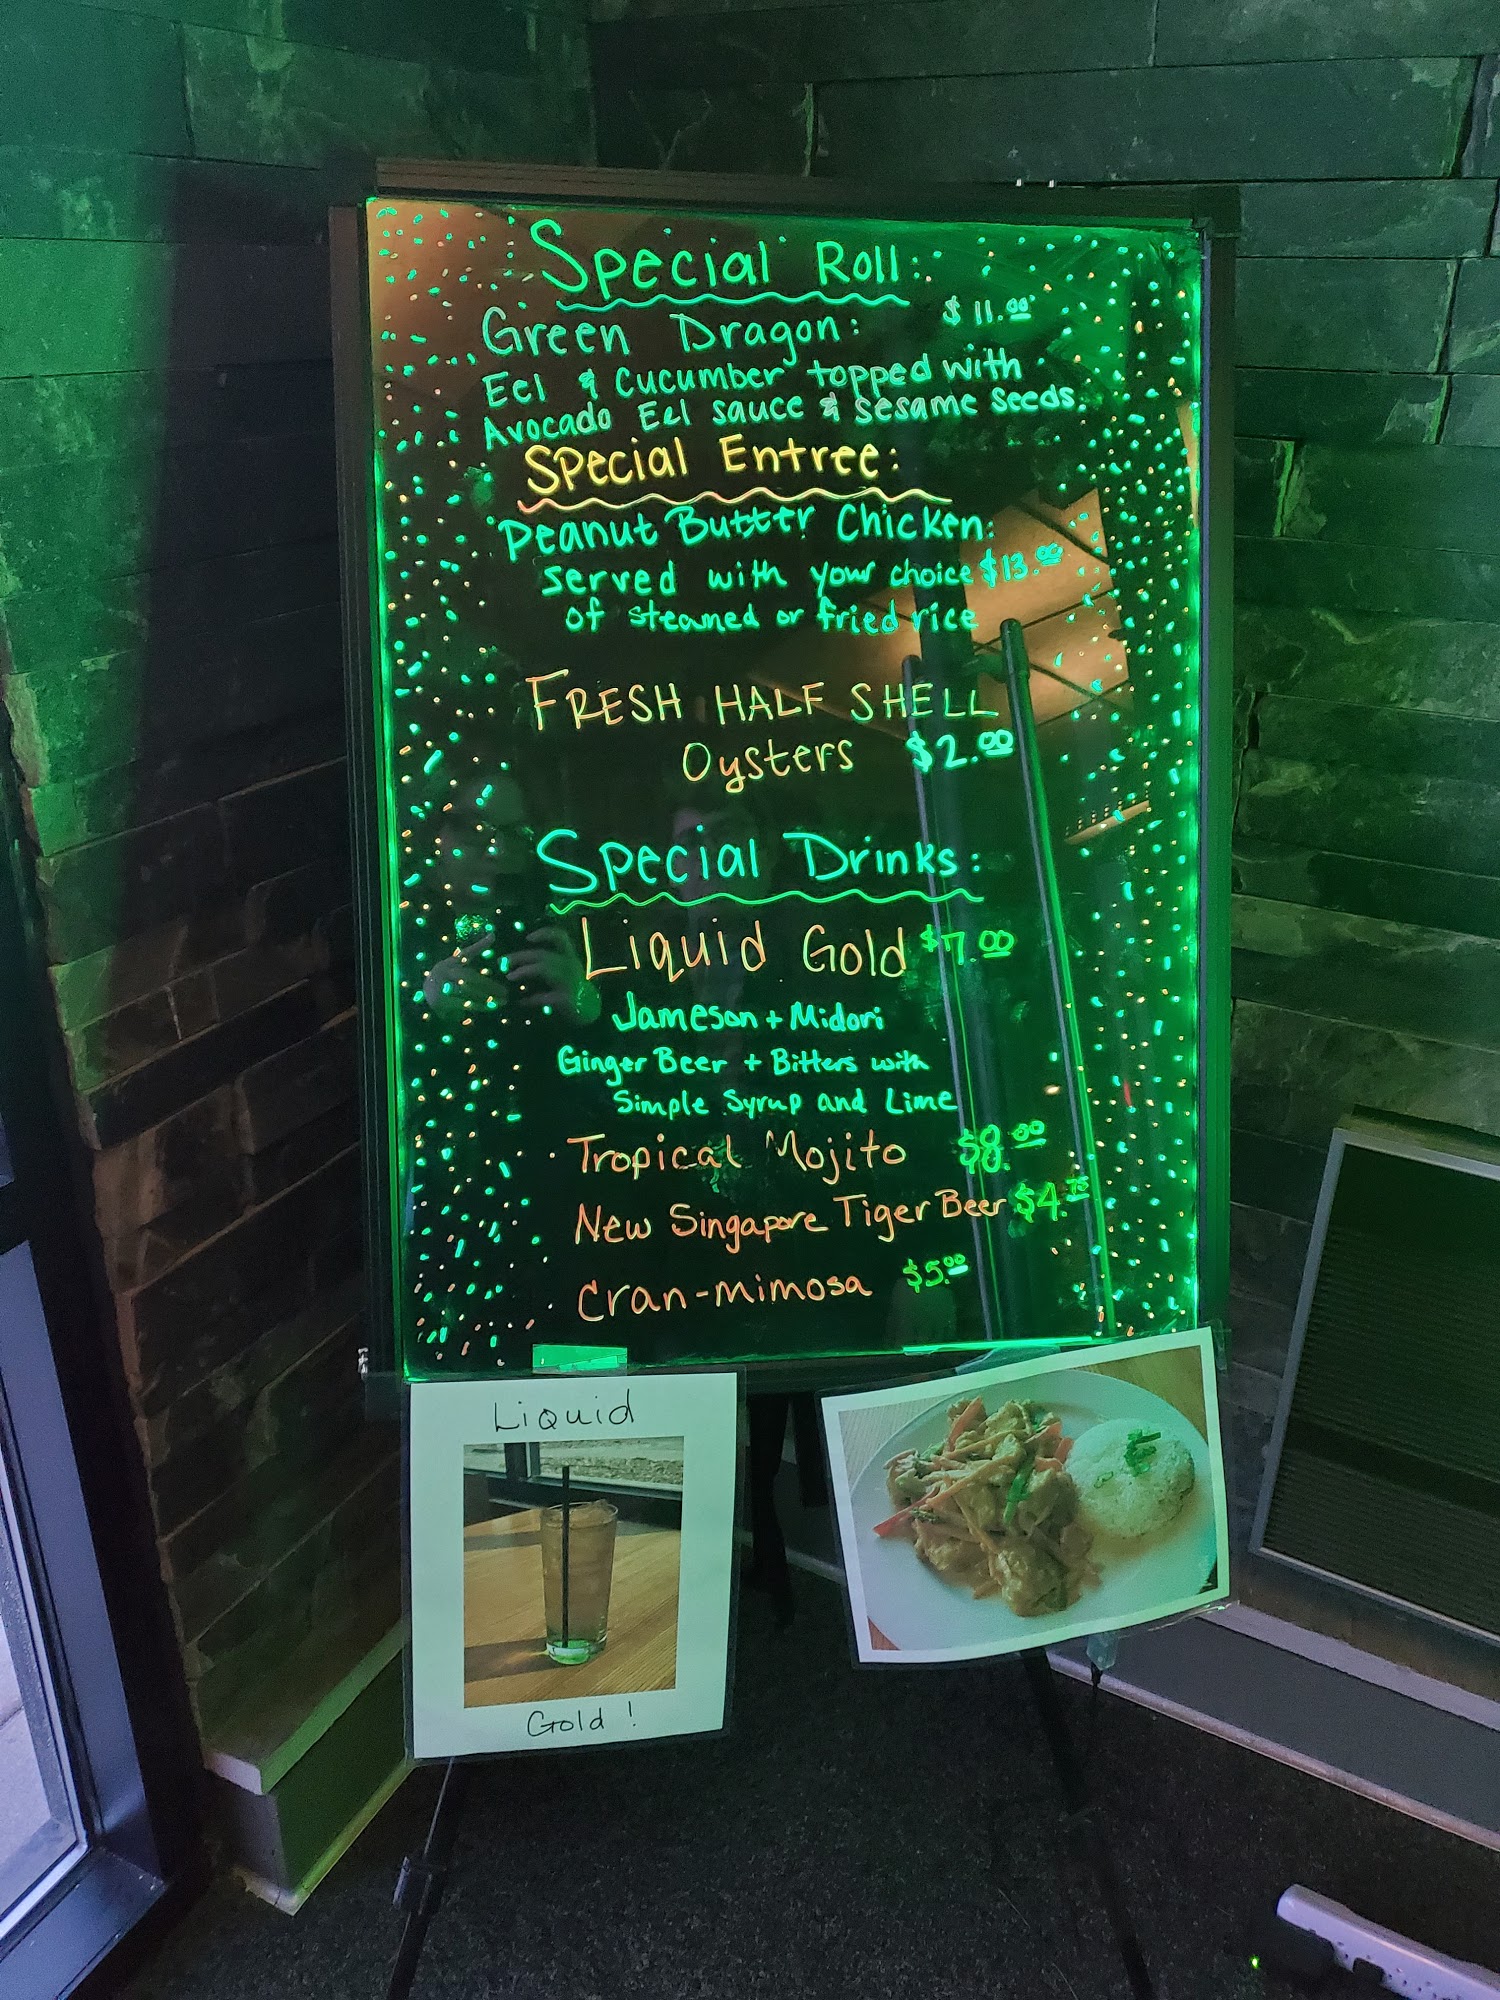 Special Roll:
Green Dragon: $11.00
Eel & Cucumber topped with
Avocado Eel sauce & sesame seeds.
Special Entree:
Peanut Butter Chicken:
served with your choice $13.00
of steamed or fried rice
FRESH HALF SHELL
Oysters $2.00
Special Drinks:
Liquid Gold $7.00
Jameson + Midori
Ginger Beer + Bitters with
Simple Syrup and Lime
Tropical Mojito $8.00
New Singapore Tiger Beer $4.75
Cran-mimosa $5.00
Liquid
Gold!